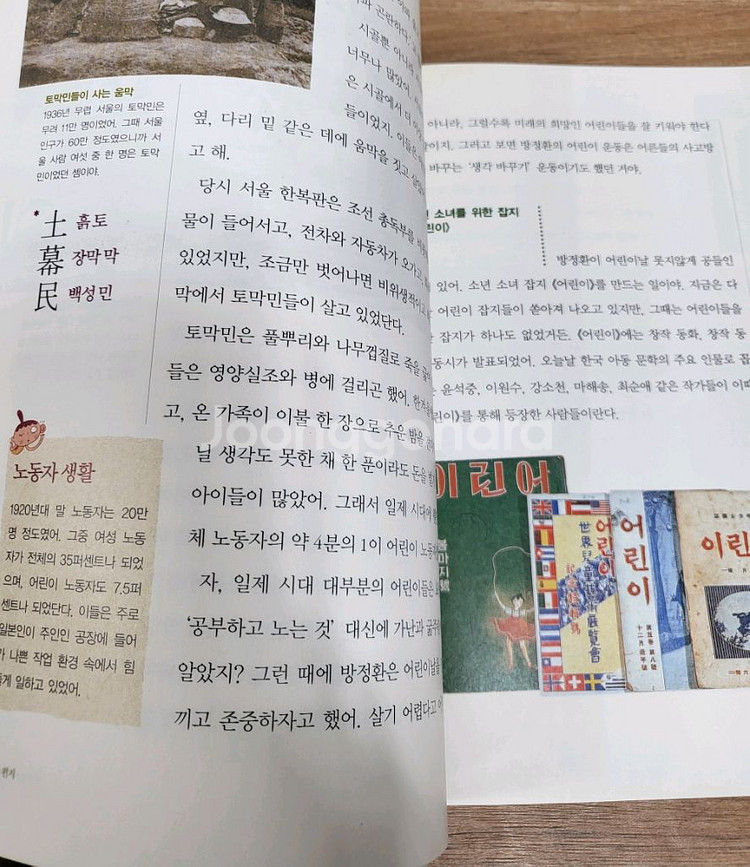 토막민들이 사는 움막
1936년 무렵 서울의 토막민은
무려 11만 명이었어. 그때 서울
인구가 60만 정도였으니까 서
울 사람 여섯 중 한 명은 토막
민이었던 셈이야.
* 土 흙 토
幕 장막 막
民 백성 민
노동자 생활
1920년대 말 노동자는 20만
명 정도였어. 그중 여성 노동
자가 전체의 35퍼센트나 되었
으며, 어린이 노동자도 7.5퍼
센트나 되었단다. 이들은 주로
일본인이 주인인 공장에 들어
나쁜 작업 환경 속에서 힘
게 일하고 있었어.
편지
과 곤란하다.
시골뿐 아니라
너무나 많았어.
은 시골에서
들이었지.
옆, 다리 밑 같은 데에 움막을 짓고
고 해.
당시 서울 한복판은 조선 총독부를
물이 들어서고, 전차와 자동차가 오가고
있었지만, 조금만 벗어나면 비위생적이고
막에서 토막민들이 살고 있었단다.
토막민은 풀뿌리와 나무껍질로 죽을
들은 영양실조와 병에 걸리곤 했어.
고, 온 가족이 이불 한 장으로 추운 밤을
닐 생각도 못한 채 한 푼이라도 돈을
아이들이 많았어. 그래서 일제 시대에
체 노동자의 약 4분의 1이 어린이
자, 일제 시대 대부분의 어린이들은
‘공부하고 노는 것’ 대신에 가난과
알았지? 그런 때에 방정환은 어린이날을
끼고 존중하자고 했어. 살기 어렵다고
아니라, 그럴수록 미래의 희망인 어린이들을 잘 키워야 한다
말이지. 그러고 보면 방정환의 어린이 운동은 어른들의 사고방
바꾸는 ‘생각 바꾸기’ 운동이기도 했던 거야.
소녀를 위한 잡지
린이》
방정환이 어린이날 못지않게 공들인
있어. 소년 소녀 잡지 《어린이》를 만드는 일이야. 지금은 다
어린이 잡지들이 쏟아져 나오고 있지만, 그때는 어린이들을
잡지가 하나도 없었거든. 《어린이》에는 창작 동화, 창작 동
동시가 발표되었어. 오늘날 한국 아동 문학의 주요 인물로 꼽
윤석중, 이원수, 강소천, 마해송, 최순애 같은 작가들이 이때
린이》를 통해 등장한 사람들이란다.
이린어
어린이
世界兒童藝術展覽會
어린이
어린이
Joonggonara